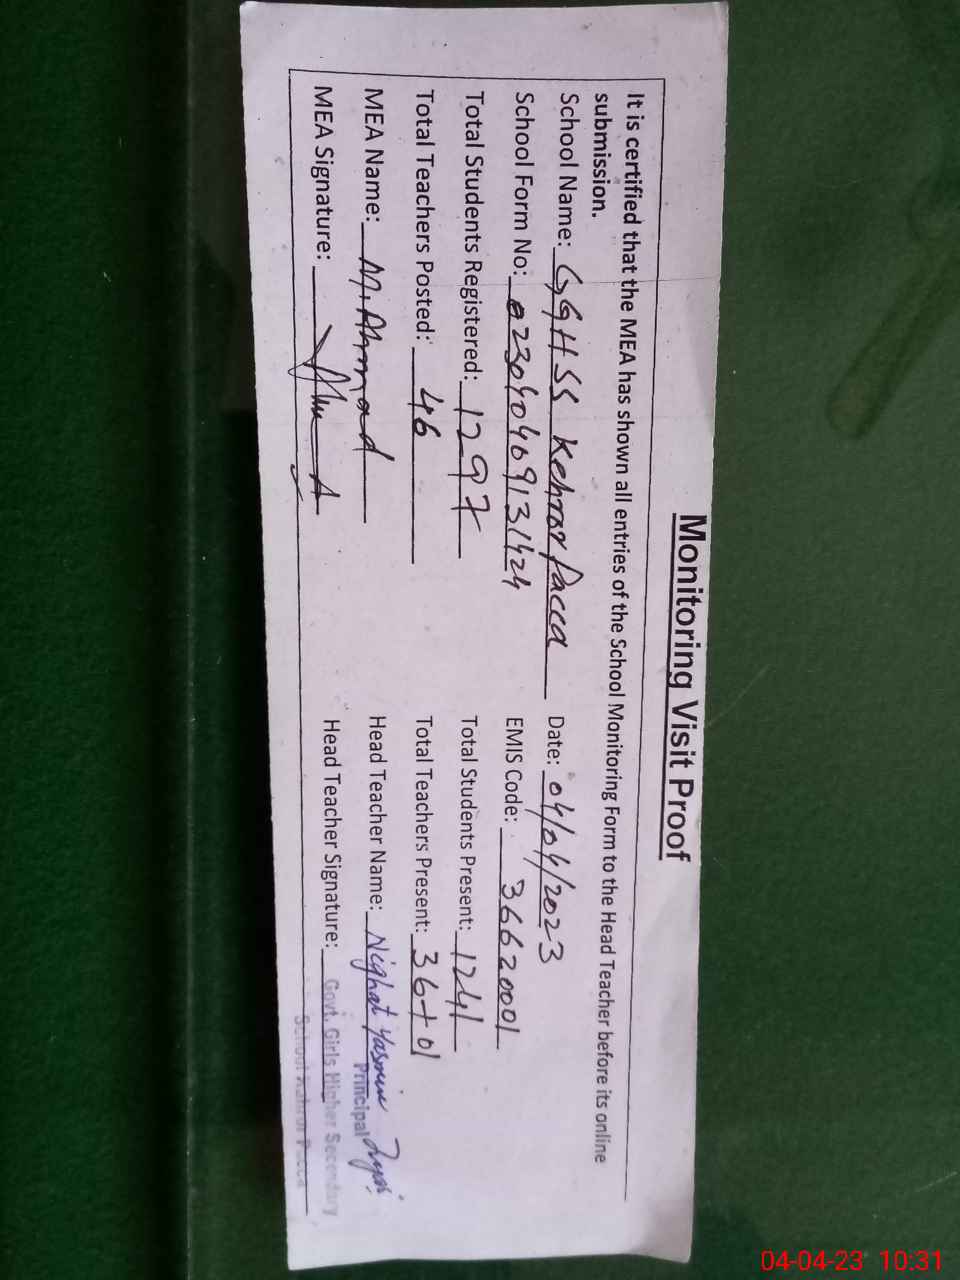 Monitoring Visit Proof
It is certified that the MEA has shown all entries of the School Monitoring Form to the Head Teacher before its online
submission.
School Name: GGHSS Kehror Pacca Date: 04/04/2023
School Form No: 023040409131424 EMIS Code: 36620001
Total Students Registered: 1297 Total Students Present: 1241
Total Teachers Posted: 46 Total Teachers Present: 36+01
MEA Name: M. Ahmad Head Teacher Name: Nighat Yasmin
Principal
MEA Signature: Head Teacher Signature: Govt. Girls Higher Secondary
School Kahror Pacca
04-04-23 10:31